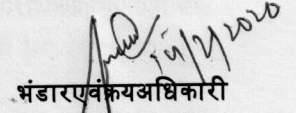 14/2/2020
भंडारएवंक्रयअधिकारी